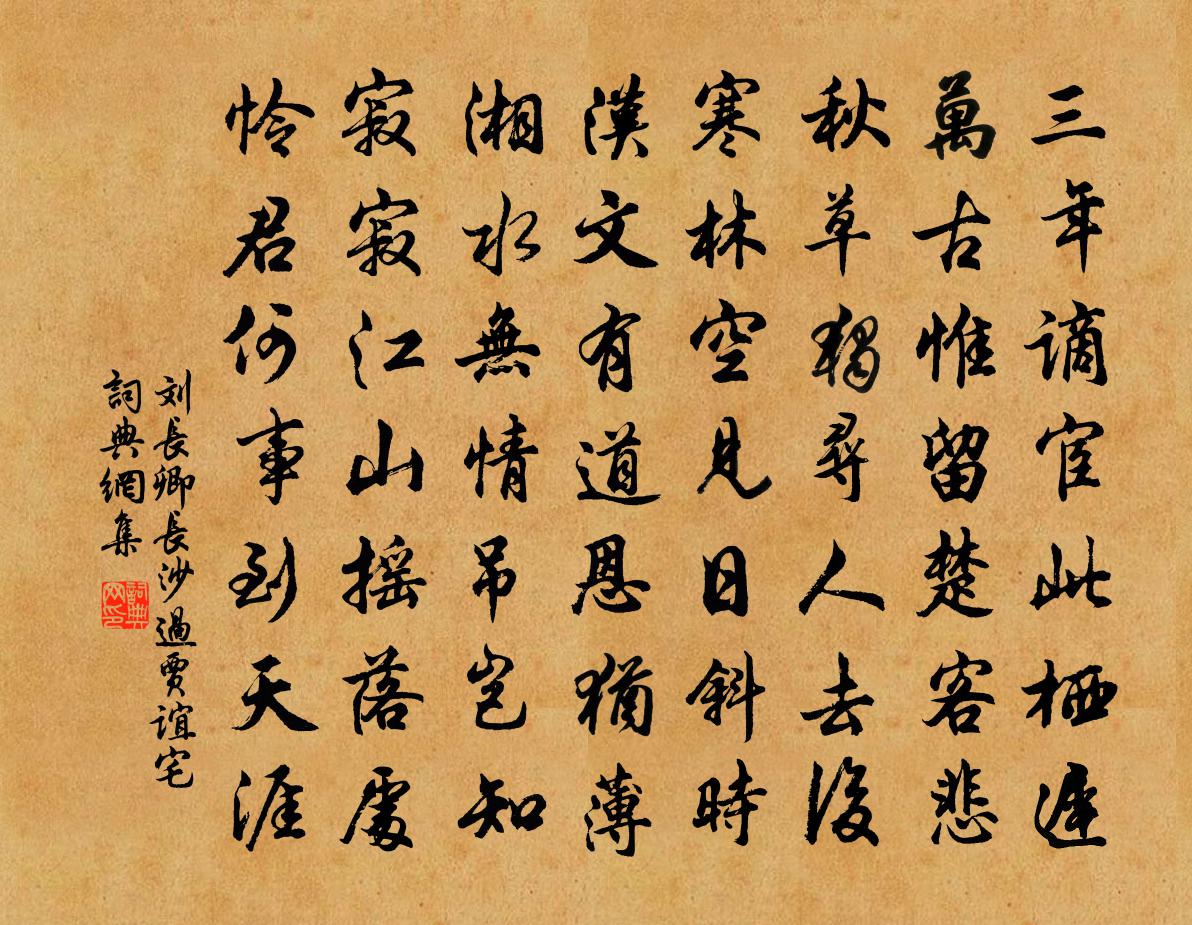 三年謫宦此栖遲
萬古惟留楚客悲
秋草獨尋人去後
寒林空見日斜時
漢文有道恩猶薄
湘水無情吊豈知
寂寂江山搖落處
怜君何事到天涯
刘長卿長沙過賈誼宅
詞典網集
詞典
网印